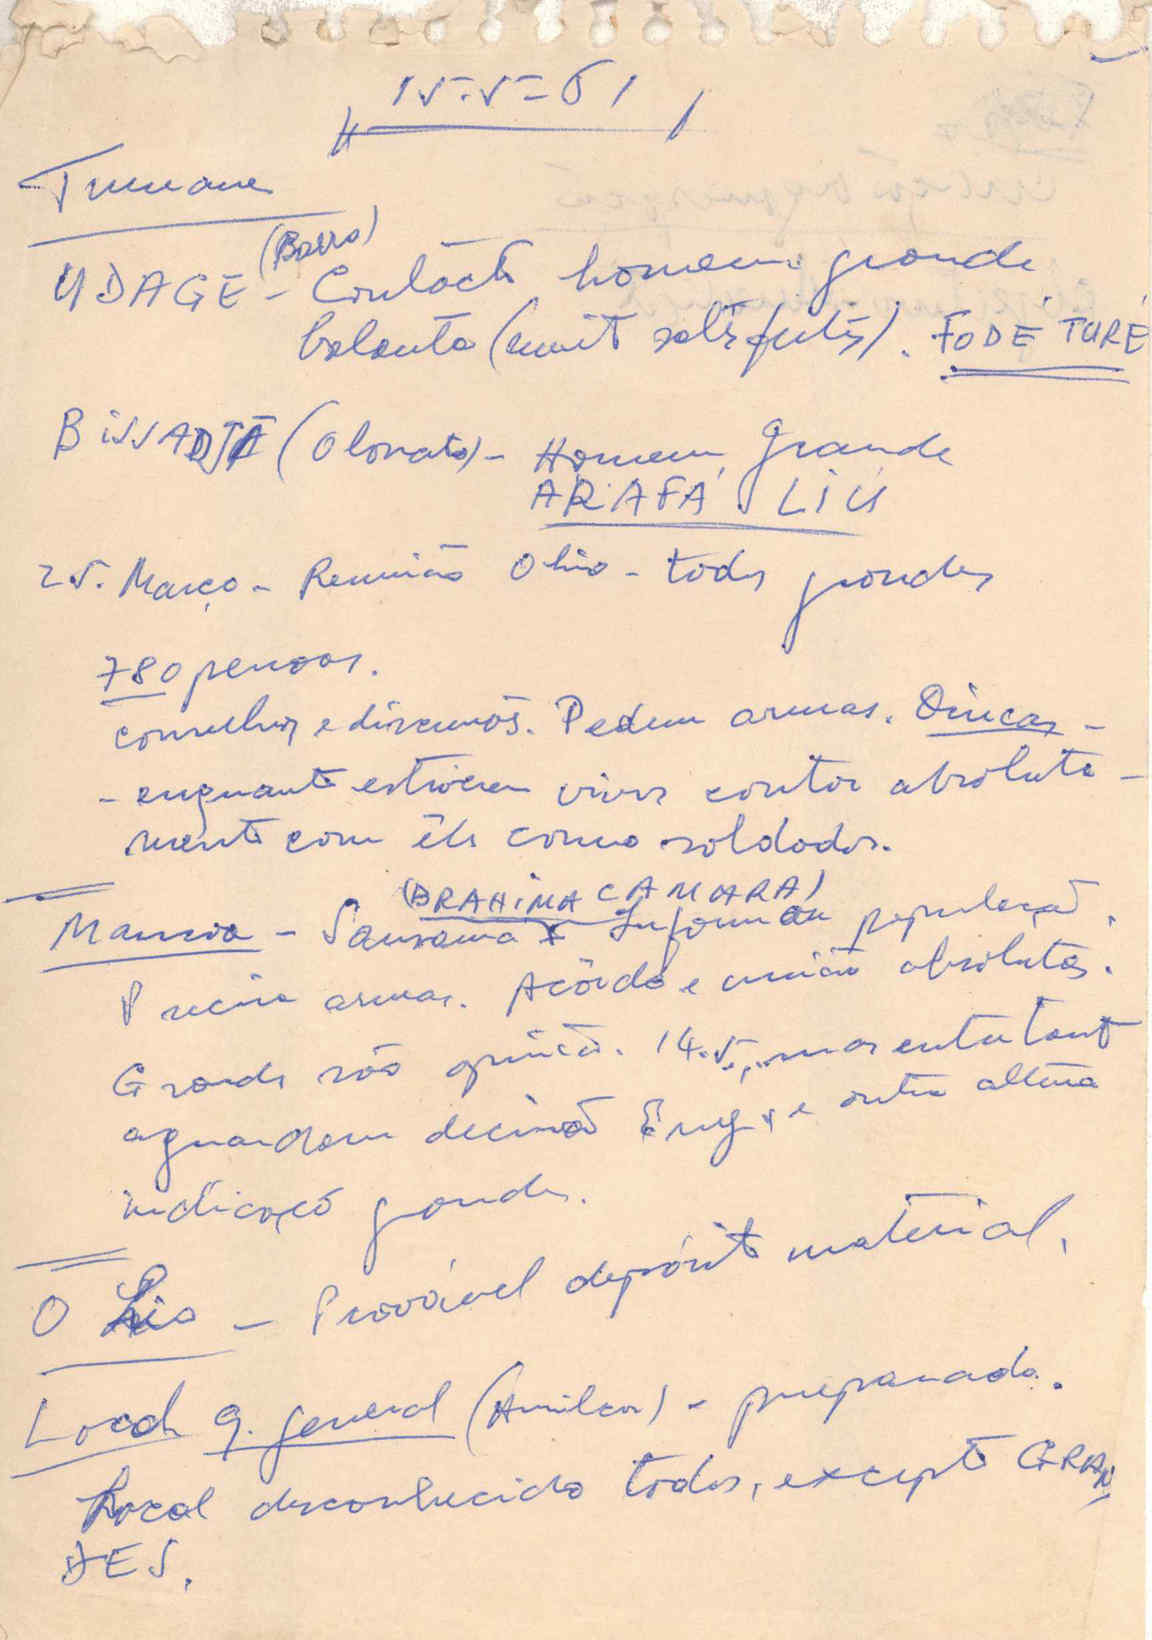 15-5-61
(Barro)
UDAGE - Contacto homem grande
balanta (muito satisfeitos). FODÉ TURÉ
BISSADJÁ (Olonato) - Homem grande
ARAFÁ LIU
25. Março - Reunião Ohio - todos grandes
780 pessoas.
conselhos e discussões. Pedem armas.
- enquanto estiverem vivos contar absoluta-
mente com êle como soldados.
(BRAHIMA CAMARA)
Mansoa - Sansama - população.
Precisa armas. Acôrdo e união absolutas.
Grandes são 14.5, mas entretanto
aguardam decisão Eng. e outra altura
indicação grandes.
O hio - Provável depósito material.
Local q. general (Amilcar) - preparado.
Local desconhecido todos, excepto GRAN-
DES.